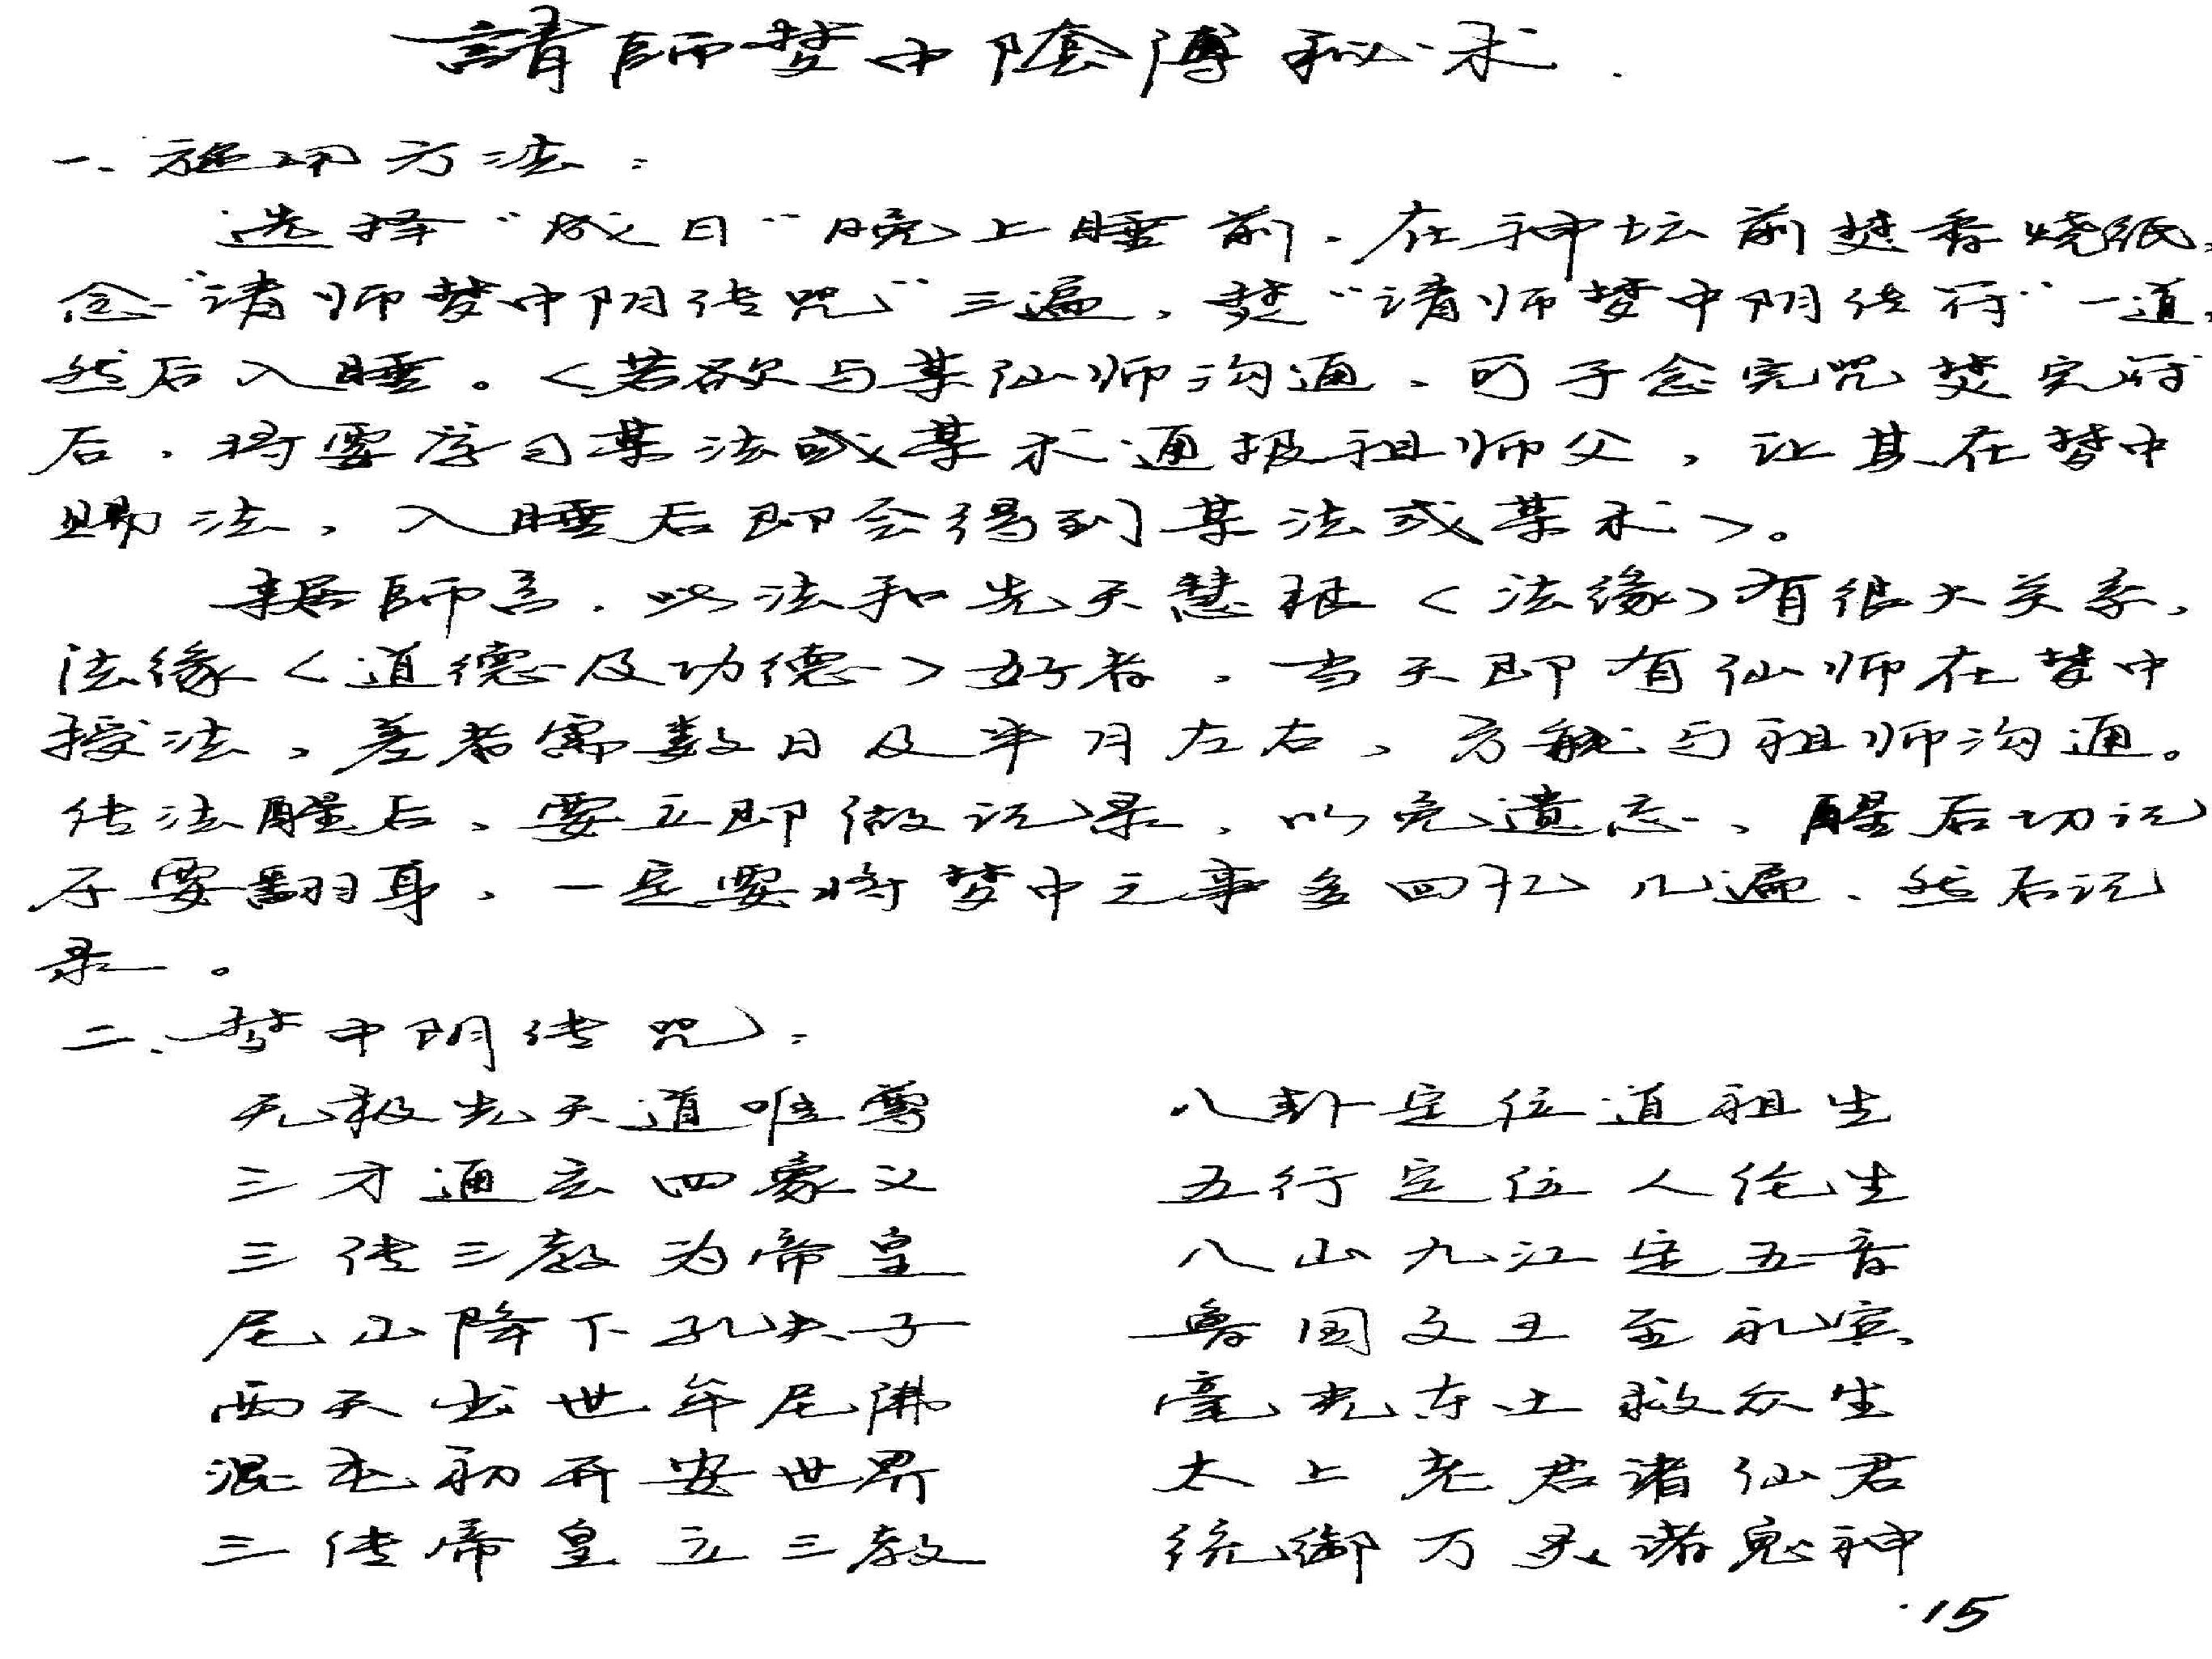 請師梦中陰傅秘术.
一、施用方法：
选择“成日”晚上睡前.在神坛前焚香烧纸,
念“请师梦中阴传咒”三遍，焚“请师梦中阴传符”一道,
然后入睡。<若欲与某仙师沟通、可于念完咒焚完符
后，将要学习某法或某术通报祖师父，让其在梦中
赐法，入睡后即会得到某法或某术>。
据師言.此法和先天慧根<法缘>有很大关系，
法缘<道德及功德>好者，当天即有仙师在梦中
授法，差者需数日及半月左右，方能与祖师沟通。
传法醒后、要立即做记录，以免遗忘、醒后切记
不要翻身，一定要将梦中之事多回忆几遍、然后记
录。
二、梦中阴传咒：
无极先天道唯尊 八卦定位道祖生
三才通玄四象义 五行定位人伦生
三传三教为帝皇 八山九江定五音
尼山降下孔夫子 鲁国文王至礼宾
西天出世牟尼佛 毫光东土救众生
混沌初开安世界 太上老君诸仙君
三传帝皇立三教 统御万灵诸鬼神
·15